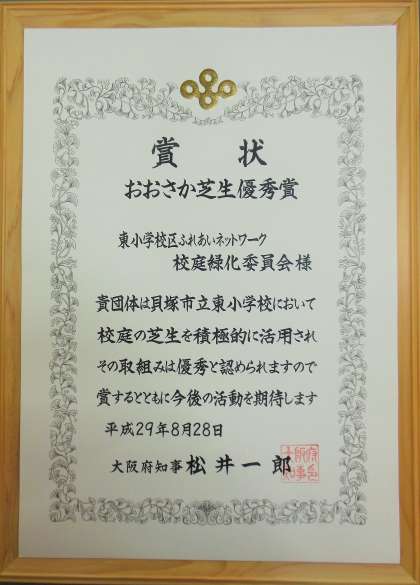 賞状
おおさか芝生優秀賞
東小学校区ふれあいネットワーク
校庭緑化委員会様
貴団体は貝塚市立東小学校において
校庭の芝生を積極的に活用され
その取組みは優秀と認められますので
賞するとともに今後の活動を期待します
平成29年8月28日
大阪府知事 松井一郎